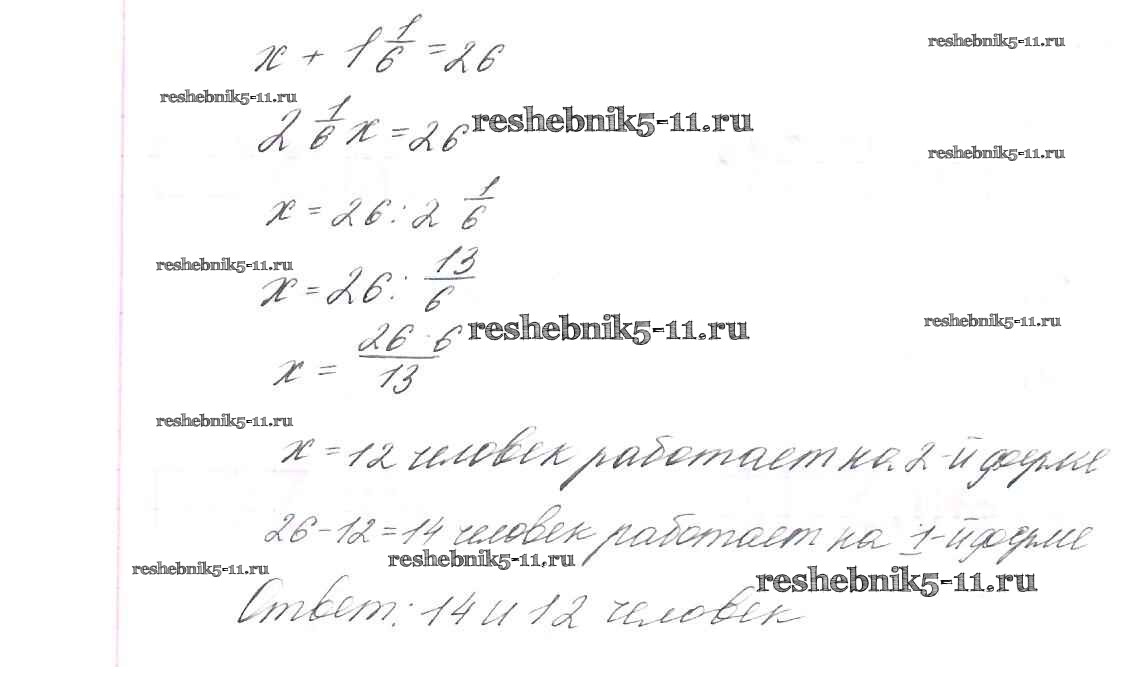 x + 1 1/6 = 26
reshebnik5-11.ru
reshebnik5-11.ru
2 1/6 x = 26
reshebnik5-11.ru
reshebnik5-11.ru
x = 26 : 2 1/6
reshebnik5-11.ru
x = 26 : 13/6
x = 26 · 6/13
reshebnik5-11.ru
reshebnik5-11.ru
reshebnik5-11.ru
x = 12 человек работает на 2-й ферме
26 - 12 = 14 человек работает на 1-й ферме
reshebnik5-11.ru
reshebnik5-11.ru
reshebnik5-11.ru
Ответ: 14 и 12 человек